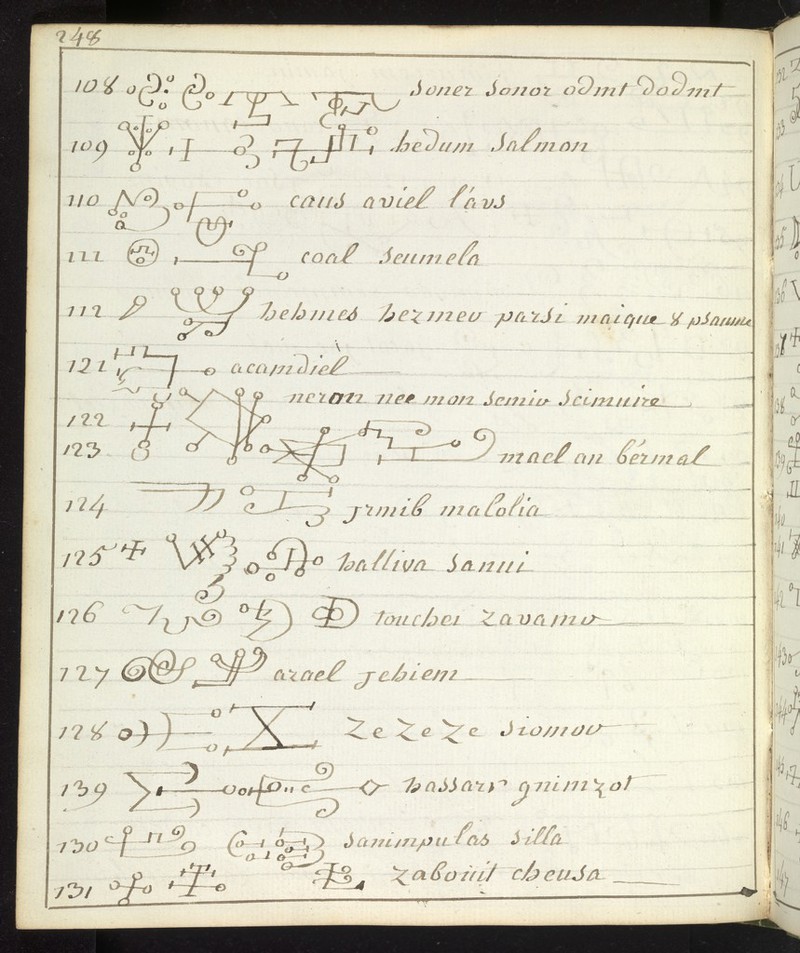 248
108 soner sonor odmt dodmt
109 hedum salmon
110 caus aviel l'avs
111 coal seumela
112 hehmes hezmev parsi maique 8 psaume
121 acamdiel
neron nee mon semiv scimuire
122
123 mael an bérmal
124 jrmib malolia
125 halliva sanui
126 toucher zavamv
127 arael jehiem
128 ZeZeZe siomov
139 hassarr gnimzot
130 sanimpulas silla
131 zabouit cheusa